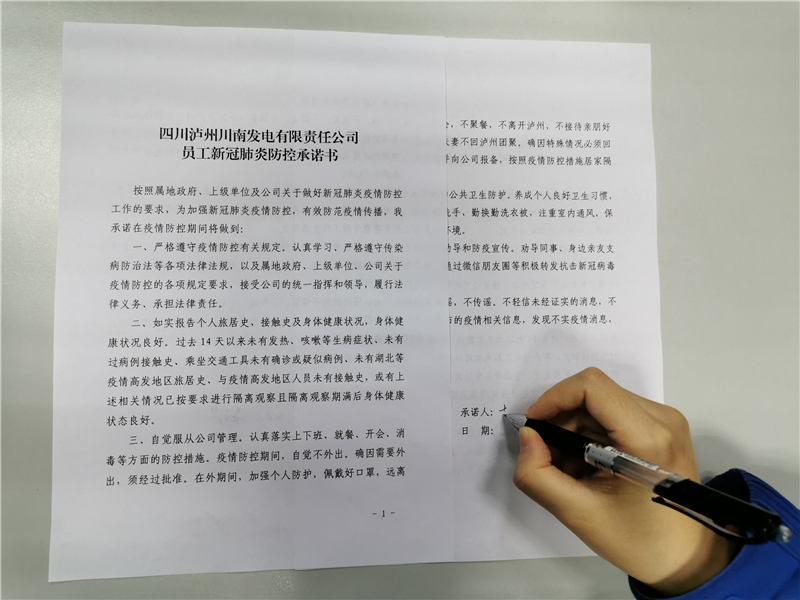 四川泸州川南发电有限责任公司
员工新冠肺炎防控承诺书
按照属地政府、上级单位及公司关于做好新冠肺炎疫情防控
工作的要求，为加强新冠肺炎疫情防控，有效防范疫情传播，我
承诺在疫情防控期间将做到：
一、严格遵守疫情防控有关规定。认真学习、严格遵守传染
病防治法等各项法律法规，以及属地政府、上级单位、公司关于
疫情防控的各项规定要求，接受公司的统一指挥和领导，履行法
律义务、承担法律责任。
二、如实报告个人旅居史、接触史及身体健康状况，身体健
康状况良好。过去 14 天以来未有发热、咳嗽等生病症状、未有
过病例接触史、乘坐交通工具未有确诊或疑似病例、未有湖北等
疫情高发地区旅居史、与疫情高发地区人员未有接触史，或有上
述相关情况已按要求进行隔离观察且隔离观察期满后身体健康
状态良好。
三、自觉服从公司管理。认真落实上下班、就餐、开会、消
毒等方面的防控措施。疫情防控期间，自觉不外出。确因需要外
出，须经过批准。在外期间，加强个人防护，佩戴好口罩，远离
- 1 -
，不聚餐、不离开泸州，不接待亲朋好
夫妻不回泸州团聚。确因特殊情况必须回
并向公司报备，按照疫情防控措施居家隔
公共卫生防护，养成个人良好卫生习惯，
洗手、勤换勤洗衣被，注重室内通风，保
环境。
劝导和防疫宣传。劝导同事、身边亲友支
通过微信朋友圈等积极转发抗击新冠病毒
谣，不传谣。不轻信未经证实的消息，不
的疫情相关信息，发现不实疫情消息，
承诺人：
日 期：